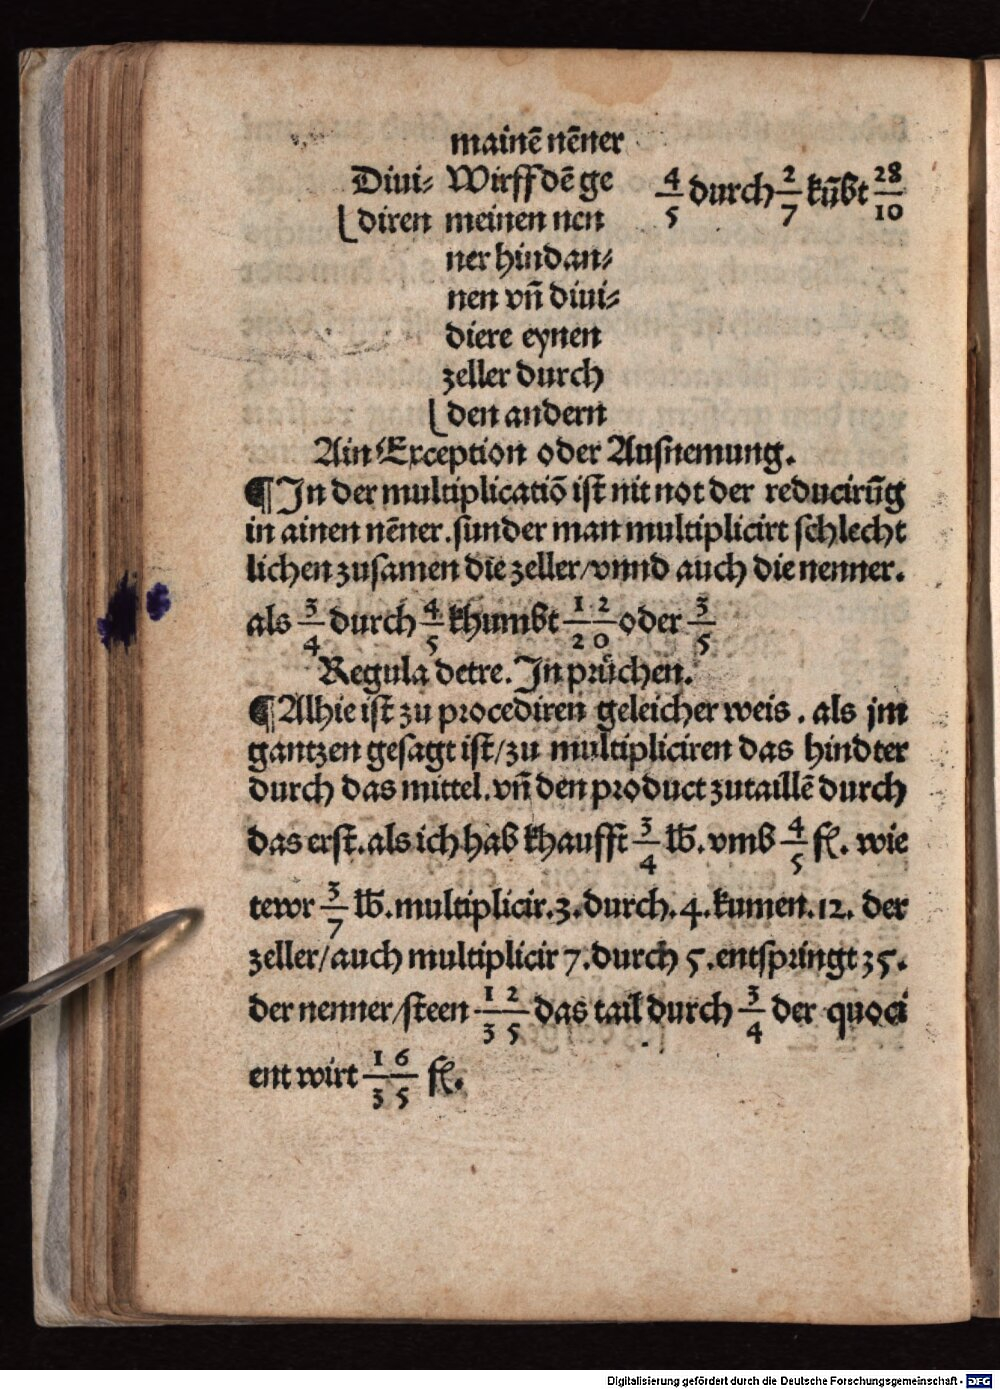 mainē nēner
Diui⸗ Wirff dē ge 4/5 durch 2/7 kūbt 28/10
diren meinen nen
ner hindan⸗
nen vn̄ diui⸗
diere eynen
zeller durch
den andern
Ain Exception oder Ausnemung.
¶ In der multiplicatiō ist nit not der reducirūg
in ainen nēner. sunder man multiplicirt schlecht
lichen zusamen die zeller/vnnd auch die nenner.
als 3/4 durch 4/5 khumbt 12/20 oder 3/5
Regula detre. In prüchen.
¶ Alhie ist zu procediren geleicher weis. als jm
gantzen gesagt ist/zu multipliciren das hindter
durch das mittel. vn̄ den product zutaillē durch
das erst. als ich hab khaufft 3/4 lb. vmb 4/5 fl. wie
tewr 3/7 lb. multiplicir.3.durch.4.kumen.12. der
zeller/auch multiplicir 7.durch 5.entspringt 35.
der nenner/steen 12/35 das tail durch 3/4 der quoci
ent wirt 16/35 fl.
Digitalisierung gefördert durch die Deutsche Forschungsgemeinschaft - DFG